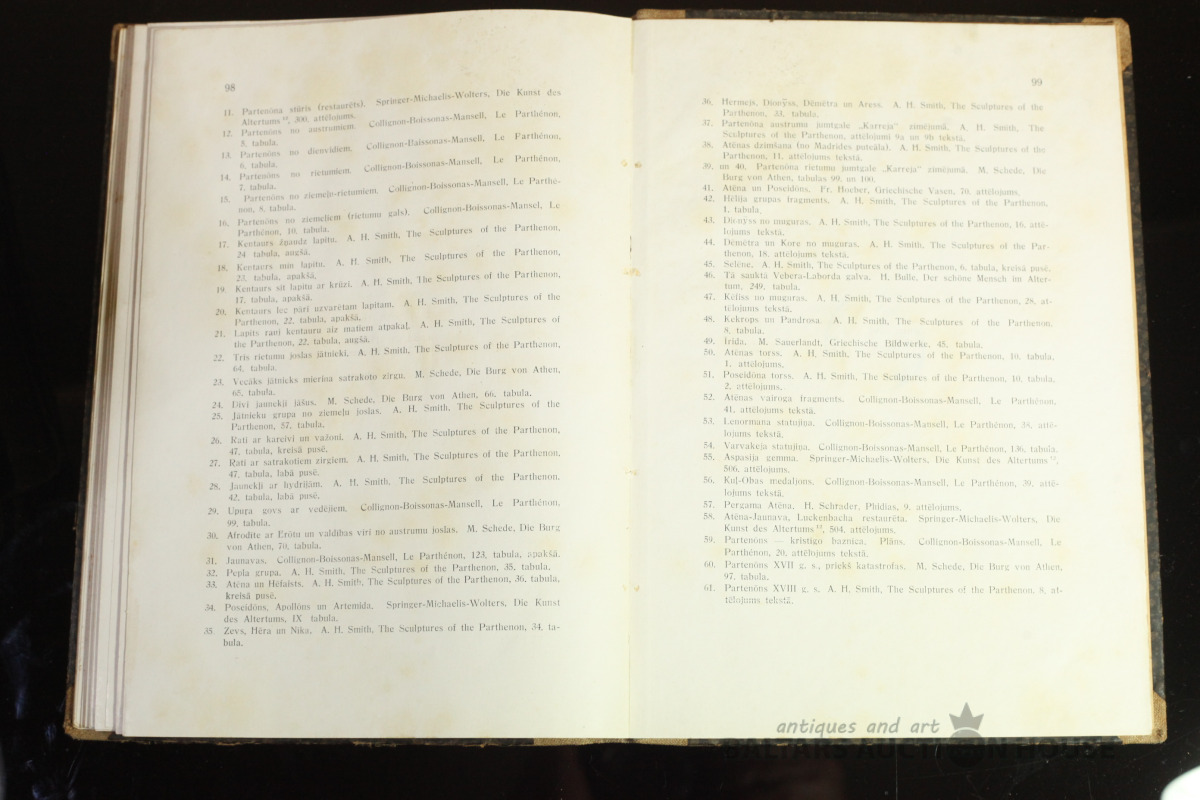 98
11. Partenona stūris (restaurēts). Springer-Michaelis-Wolters, Die Kunst des
Altertums¹², 300. attēlojums.
12. Partenōns no austrumiem. Collignon-Boissonas-Mansell, Le Parthénon,
5. tabula.
13. Partenōns no dienvidiem. Collignon-Boissonas-Mansell, Le Parthénon,
6. tabula.
14. Partenōns no rietumiem. Collignon-Boissonas-Mansell, Le Parthénon,
7. tabula.
15. Partenōns no ziemeļu-rietumiem. Collignon-Boissonas-Mansell, Le Parthé-
non, 8. tabula.
16. Partenōns no ziemeļiem (rietumu gals). Collignon-Boissonas-Mansel, Le
Parthénon, 10. tabula.
17. Kentaurs žņaudz lapitu. A. H. Smith, The Sculptures of the Parthenon,
24. tabula, augšā.
18. Kentaurs min lapitu. A. H. Smith, The Sculptures of the Parthenon,
23. tabula, apakšā.
19. Kentaurs sit lapitu ar krūzi. A. H. Smith, The Sculptures of the Parthenon,
17. tabula, apakšā.
20. Kentaurs lec pāri uzvarētam lapitam. A. H. Smith, The Sculptures of the
Parthenon, 22. tabula, apakšā.
21. Lapits rauj kentauru aiz matiem atpakaļ. A. H. Smith, The Sculptures of
the Parthenon, 22. tabula, augšā.
22. Trīs rietumu joslas jātnieki. A. H. Smith, The Sculptures of the Parthenon,
64. tabula.
23. Vecāks jātnieks mierina satrakoto zirgu. M. Schede, Die Burg von Athen,
65. tabula.
24. Divi jaunekļi jāšus. M. Schede, Die Burg von Athen, 66. tabula.
25. Jātnieku grupa no ziemeļu joslas. A. H. Smith, The Sculptures of the
Parthenon, 57. tabula.
26. Rati ar kareivi un važoni. A. H. Smith, The Sculptures of the Parthenon,
47. tabula, kreisā pusē.
27. Rati ar satrakotiem zirgiem. A. H. Smith, The Sculptures of the Parthenon,
47. tabula, labā pusē.
28. Jaunekļi ar hydrijām. A. H. Smith, The Sculptures of the Parthenon,
42. tabula, labā pusē.
29. Upuŗa govs ar vedējiem. Collignon-Boissonas-Mansell, Le Parthénon,
99. tabula.
30. Afrodīte ar Erōtu un valdības vīri no austrumu joslas. M. Schede, Die Burg
von Athen, 70. tabula.
31. Jaunavas. Collignon-Boissonas-Mansell, Le Parthénon, 123. tabula, apakšā.
32. Pepla grupa. A. H. Smith, The Sculptures of the Parthenon, 35. tabula.
33. Atēna un Hēfaists. A. H. Smith, The Sculptures of the Parthenon, 36. tabula,
kreisā pusē.
34. Poseidōns, Apollōns un Artemida. Springer-Michaelis-Wolters, Die Kunst
des Altertums, IX tabula.
35. Zevs, Hēra un Nika. A. H. Smith, The Sculptures of the Parthenon, 34. ta-
bula.
99
36. Hermejs, Dionȳss, Dēmētra un Aress. A. H. Smith, The Sculptures of the
Parthenon, 33. tabula.
37. Partenōna austrumu jumtgale „Karreja" zīmējumā. A. H. Smith, The
Sculptures of the Parthenon, attēlojumi 9a un 9b tekstā.
38. Atēnas dzimšana (no Madrides puteāla). A. H. Smith, The Sculptures of the
Parthenon, 11. attēlojums tekstā.
39. un 40. Partenōna rietumu jumtgale „Karreja" zīmējumā. M. Schede, Die
Burg von Athen, tabulas 99. un 100.
41. Atēna un Poseidōns. Fr. Hoeber, Griechische Vasen, 70. attēlojums.
42. Hēlija grupas fragments. A. H. Smith, The Sculptures of the Parthenon,
1. tabula.
43. Dionyss no muguras. A. H. Smith, The Sculptures of the Parthenon, 16. attē-
lojums tekstā.
44. Dēmētra un Kore no muguras. A. H. Smith, The Sculptures of the Par-
thenon, 18. attēlojums tekstā.
45. Selēne. A. H. Smith, The Sculptures of the Parthenon, 6. tabula, kreisā pusē.
46. Tā sauktā Vebera-Laborda galva. H. Bulle, Der schöne Mensch im Alter-
tum, 249. tabula.
47. Kēfiss no muguras. A. H. Smith, The Sculptures of the Parthenon, 28. at-
tēlojums tekstā.
48. Kekrops un Pandrosa. A. H. Smith, The Sculptures of the Parthenon,
8. tabula.
49. Īrida. M. Sauerlandt, Griechische Bildwerke, 45. tabula.
50. Atēnas torss. A. H. Smith, The Sculptures of the Parthenon, 10. tabula,
1. attēlojums.
51. Poseidōna torss. A. H. Smith, The Sculptures of the Parthenon, 10. tabula,
2. attēlojums.
52. Atēnas vairoga fragments. Collignon-Boissonas-Mansell, Le Parthénon,
41. attēlojums tekstā.
53. Lenormana statujiņa. Collignon-Boissonas-Mansell, Le Parthénon, 38. attē-
lojums tekstā.
54. Varvakeja statujiņa. Collignon-Boissonas-Mansell, Le Parthénon, 136. tabula.
55. Aspasija gemma. Springer-Michaelis-Wolters, Die Kunst des Altertums¹²,
506. attēlojums.
56. Kuļ-Obas medaljons. Collignon-Boissonas-Mansell, Le Parthénon, 39. attē-
lojums tekstā.
57. Pergama Atēna. H. Schrader, Phidias, 9. attēlojums.
58. Atēna-Jaunava, Luckenbacha restaurēta. Springer-Michaelis-Wolters, Die
Kunst des Altertums¹², 504. attēlojums.
59. Partenōns — kristīgo baznīca. Plāns. Collignon-Boissonas-Mansell, Le
Parthénon, 20. attēlojums tekstā.
60. Partenōns XVII g. s., priekš katastrofas. M. Schede, Die Burg von Athen,
97. tabula.
61. Partenōns XVIII g. s. A. H. Smith, The Sculptures of the Parthenon, 8. at-
tēlojums tekstā.
antiques and art
BALTARS AUCTION HOUSE